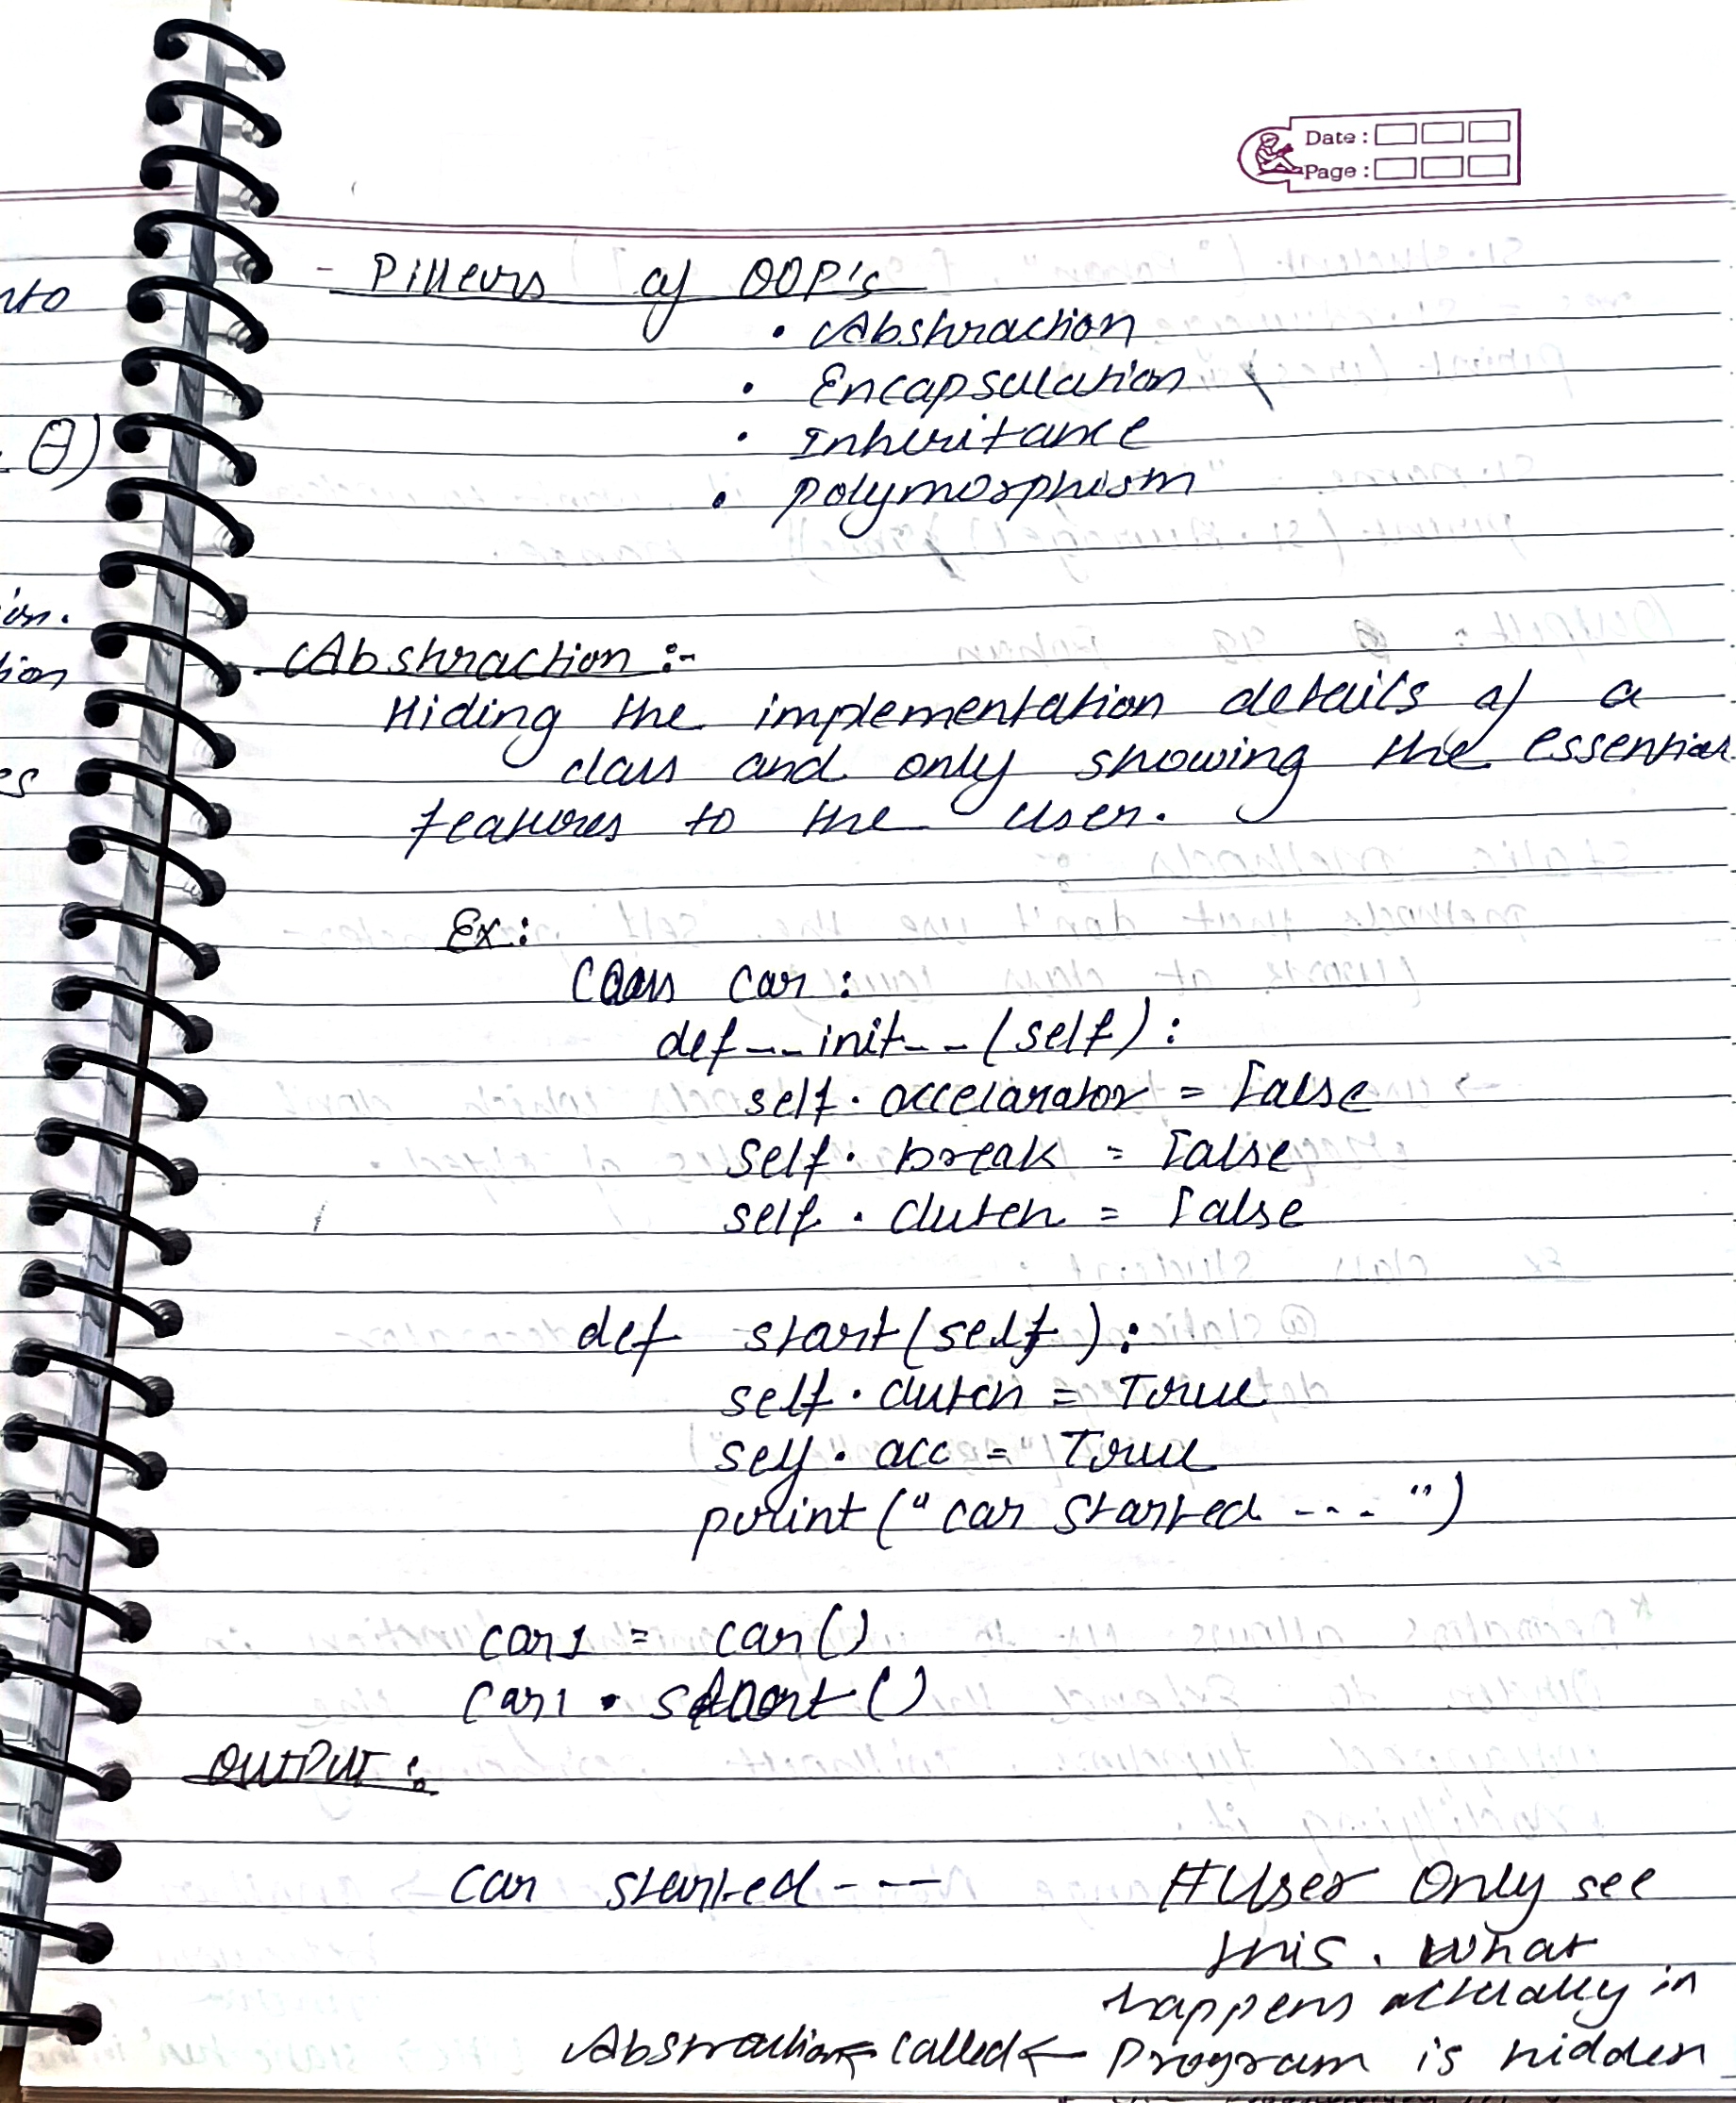 Date :
Page :
- Pillers of OOP's
• Abshraction
• Encapsulation
• Inheritance
• polymorphism
Abshraction :-
Hiding the implementation details of a
class and only showing the essential
features to the user.
Ex:
Class car :
def __init__(self):
self.accelarator = False
self.break = False
self.clutch = False
def start(self):
self.clutch = True
self.acc = True
print("car started ....")
car1 = car()
car1.start()
OUTPUT :
car started ---
#User Only see
this. What
happens actually in
Program is hidden
Abstraction ← called ←
nto
θ)
ion.
tion
es